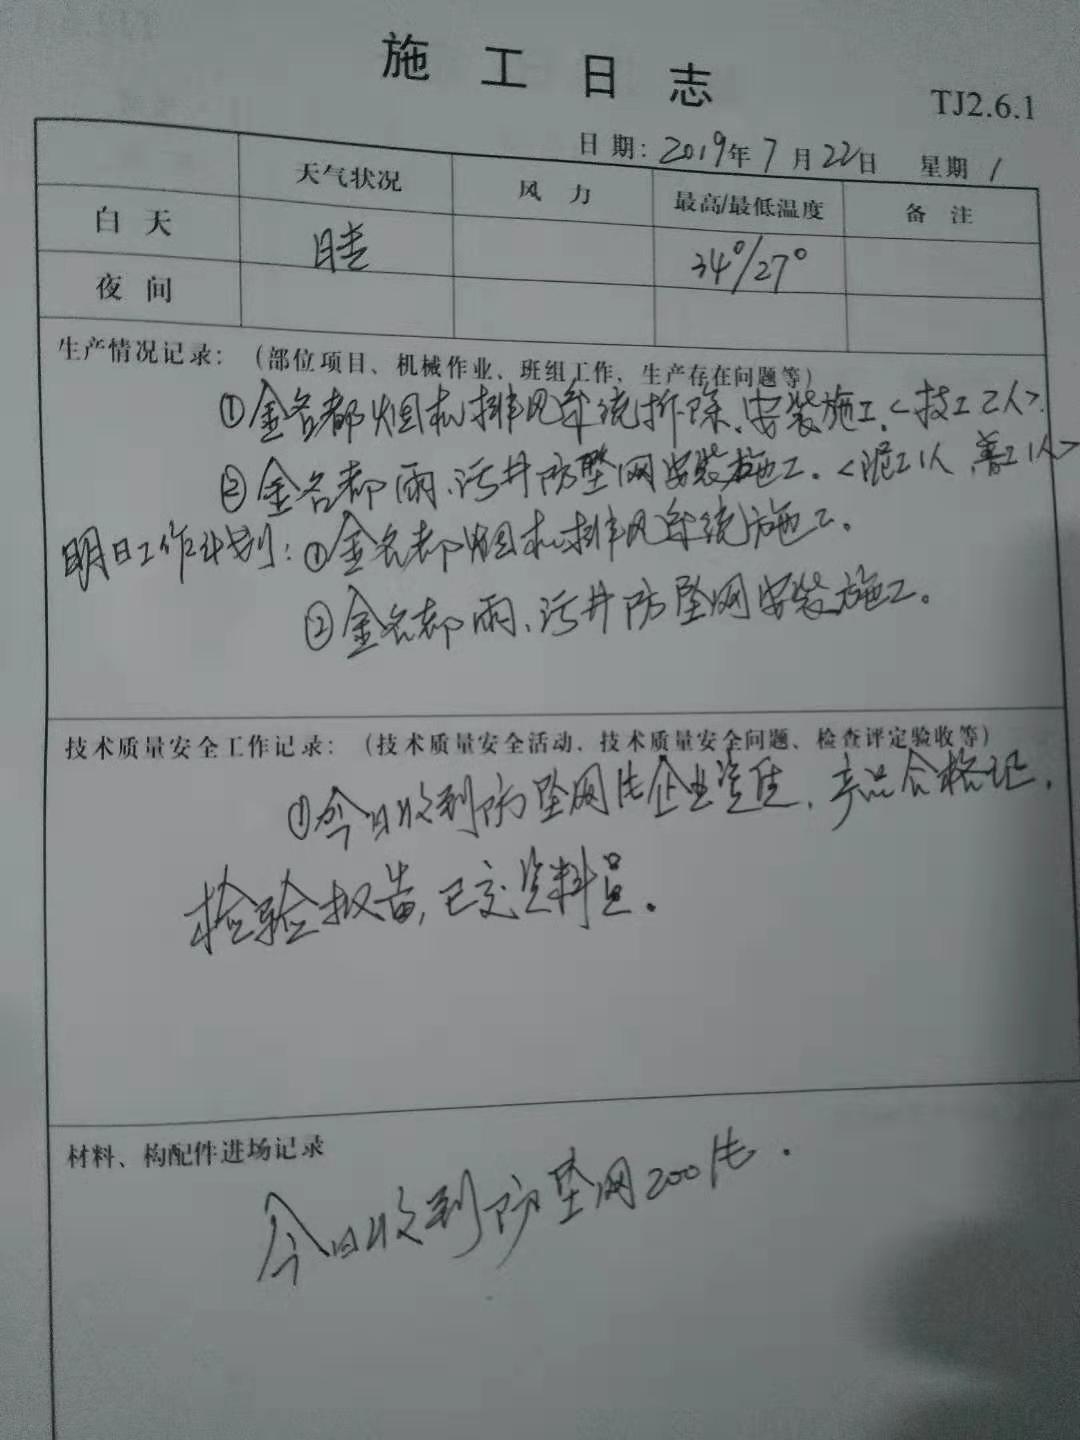 施工日志
TJ2.6.1
日期：2019年7月22日 星期1
天气状况 风力 最高/最低温度 备注
白天 晴 34°/27°
夜间
生产情况记录：（部位项目、机械作业、班组工作、生产存在问题等）
①金名都烟机排风系统拆除、安装施工.<技工2人>.
②金名都雨、污井防坠网安装施工.<工1人、普工1人>
明日工作计划：①金名都烟机排风系统施工。
②金名都雨、污井防坠网安装施工。
技术质量安全工作记录：（技术质量安全活动、技术质量安全问题、检查评定验收等）
①今日收到防坠网企业资质、产品合格证、
检验报告，已交资料员。
材料、构配件进场记录
今日收到防坠网200.